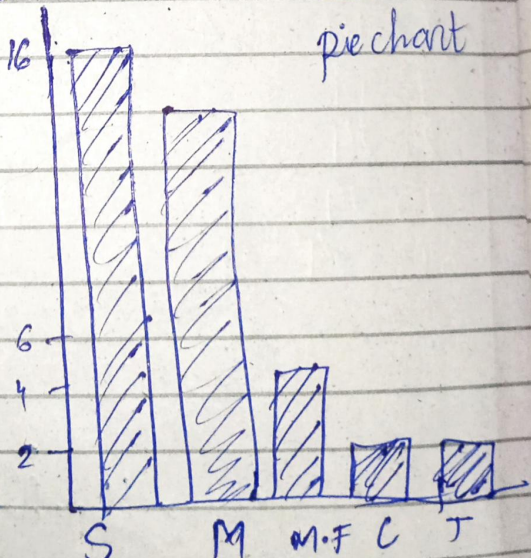 pie chart
16
6
4
2
S M M.F C J